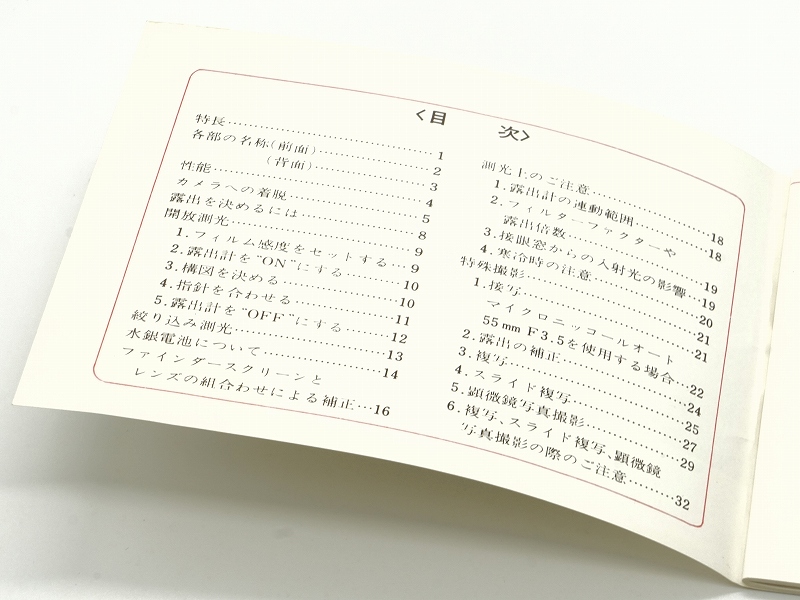 〈目 次〉
特長……………………………1
各部の名称(前面)………………2
(背面)………………3
性能……………………………4
カメラへの着脱…………………5
露出を決めるには………………8
開放測光………………………9
1.フィルム感度をセットする…9
2.露出計を"ON"にする………10
3.構図を決める………………10
4.指針を合わせる……………11
5.露出計を"OFF"にする……12
絞り込み測光…………………13
水銀電池について……………14
ファインダースクリーンと
レンズの組合わせによる補正…16
測光上のご注意………………18
1.露出計の連動範囲…………18
2.フィルターファクターや
露出倍数……………………19
3.接眼窓からの入射光の影響…19
4.寒冷時の注意………………20
特殊撮影………………………21
1.接写…………………………21
マイクロニッコールオート
55mm F3.5を使用する場合…22
2.露出の補正…………………24
3.複写…………………………25
4.スライド複写………………27
5.顕微鏡写真撮影……………29
6.複写、スライド複写、顕微鏡
写真撮影の際のご注意………32